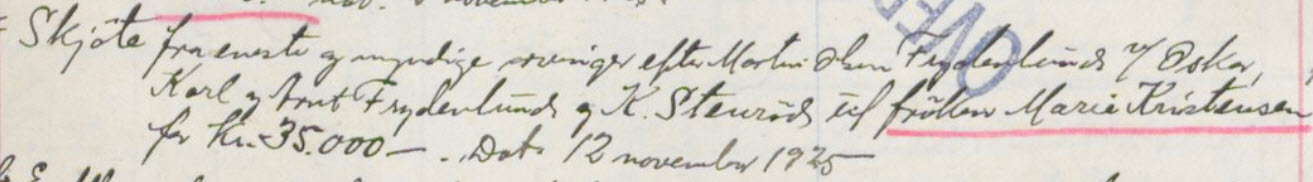 Skjöte fra eneste og myndige arvinger efter Martin Olsen Frydenlund v/ Oskar,
Karl og Arnt Frydenlund og K. Stenröd til fröken Marie Kristensen
for Kr. 35.000 —. Dat. 12 november 1925